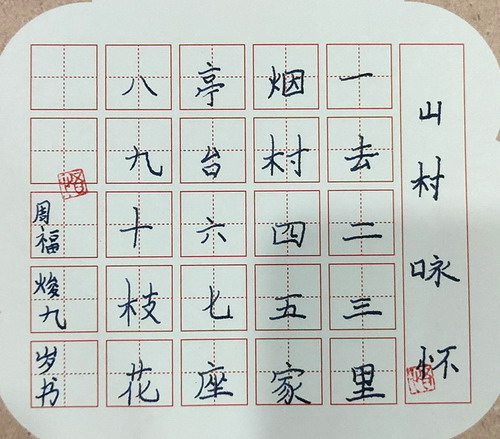 山村咏怀
一去二三里
烟村四五家
亭台六七座
八九十枝花
周福
焌九
岁书